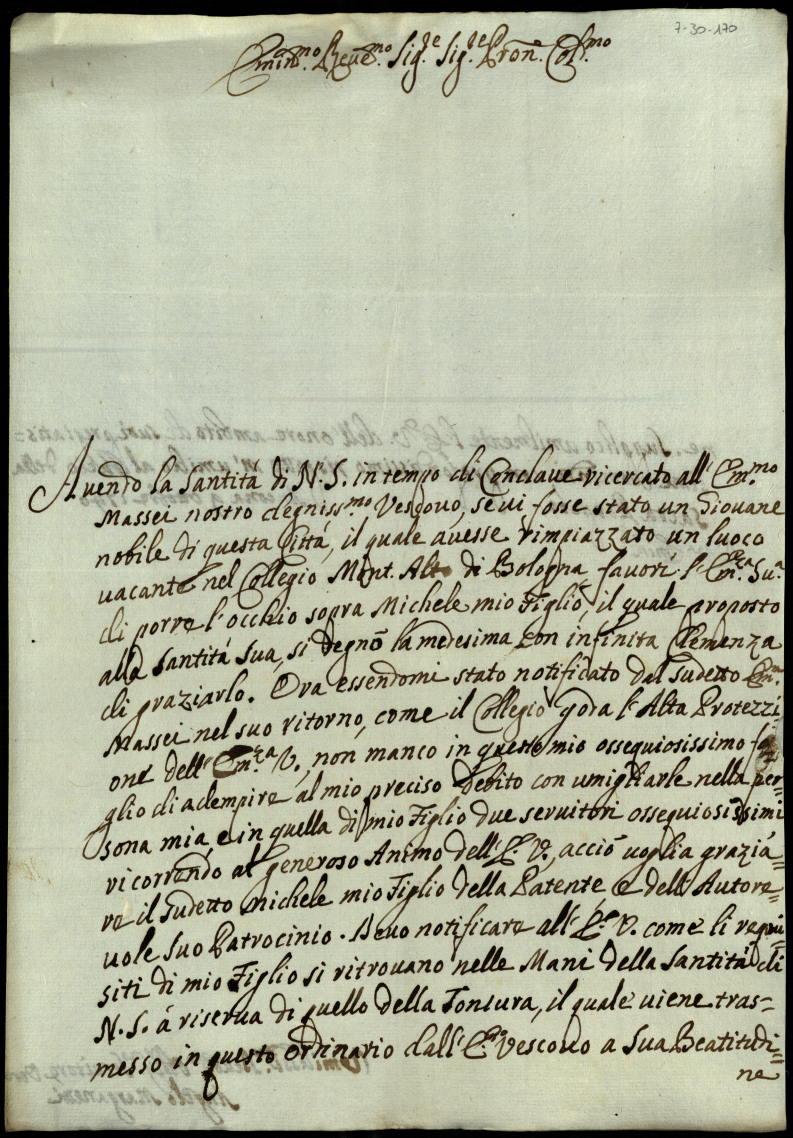 7-30-170
Emin.mo Reue.mo Sig.re Sig.re Pron. Col.mo
Auendo la Santitá di N.S. in tempo di Conclaue ricercato all' Em.mo
Massei nostro degniss.mo Vescouo, se ui fosse stato un Giouane
nobile di questa Cittá, il quale auesse rimpiazzato un luoco
uacante nel Collegio Mont. Alto di Bologna favorí l'Em.za Su.a
di porre l'occhio sopra Michele mio Figlio, il quale proposto
alla Santitá Sua, si degnó la medesima con infinita Clemenza
di graziarlo. Ora essendomi stato notificato dal Sudetto Em.
Massei nel suo ritorno, come il Collegio goda l'Alta Protezzi-
one dell' Em.za V., non manco in questo mio ossequiosissimo fo-
glio di adempire al mio preciso Debito con umigliarle nella per=
sona mia, e in quella di mio Figlio due seruitori ossequiosissimi
ricorrendo al generoso Animo dell' E. V., acció uoglia graziá=
re il Sudetto Michele mio Figlio della Patente e dell' Autore=
uole Suo Patrocinio. Deuo notificare all' E. V. come li requi
siti di mio Figlio si ritrouano nelle Mani della Santitá di
N.S. á riserua di quello della Tonsura, il quale uiene tras=
messo in questo ordinario dall' E. Vescouo a Sua Beatitudi=
ne